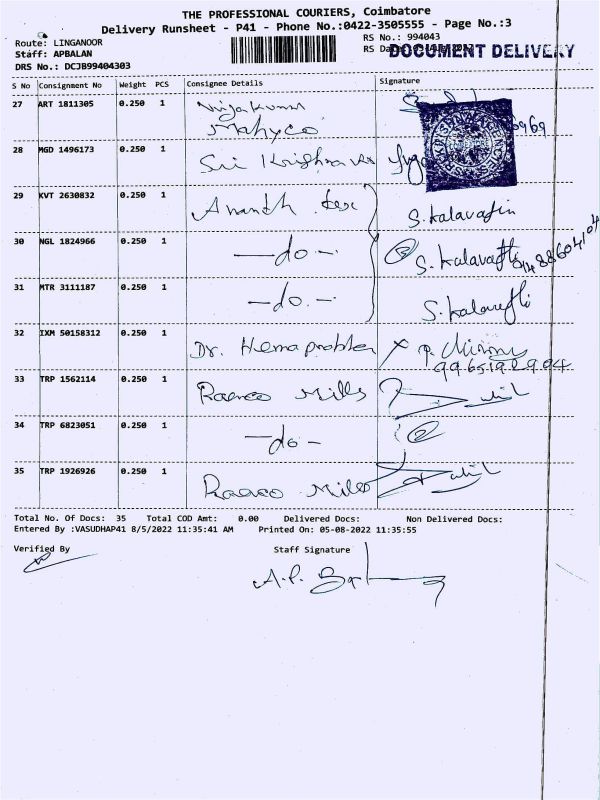 THE PROFESSIONAL COURIERS, Coimbatore
Delivery Runsheet - P41 - Phone No.:0422-3505555 - Page No.:3
Route: LINGANOOR
RS No.: 994043
Staff: APBALAN
RS Da
DOCUMENT DELIVERY
DRS No.: DCJB99404303
S No Consignment No Weight PCS Consignee Details Signature
27 ART 1811305 0.250 1 Vijakumar
Mahyco
6969
28 MGD 1496173 0.250 1 Sri Krishna
29 KVT 2630832 0.250 1 Ananth S.kalavathi
30 NGL 1824966 0.250 1 -do- S.kalavathi
31 MTR 3111187 0.250 1 -do- S.kalavathi
32 IXM 50158312 0.250 1 Dr. Hemaprabha
33 TRP 1562114 0.250 1 Raenco Mills
34 TRP 6823051 0.250 1 -do-
35 TRP 1926926 0.250 1 Raenco Mills
Total No. Of Docs: 35 Total COD Amt: 0.00 Delivered Docs: Non Delivered Docs:
Entered By :VASUDHAP41 8/5/2022 11:35:41 AM Printed On: 05-08-2022 11:35:55
Verified By Staff Signature